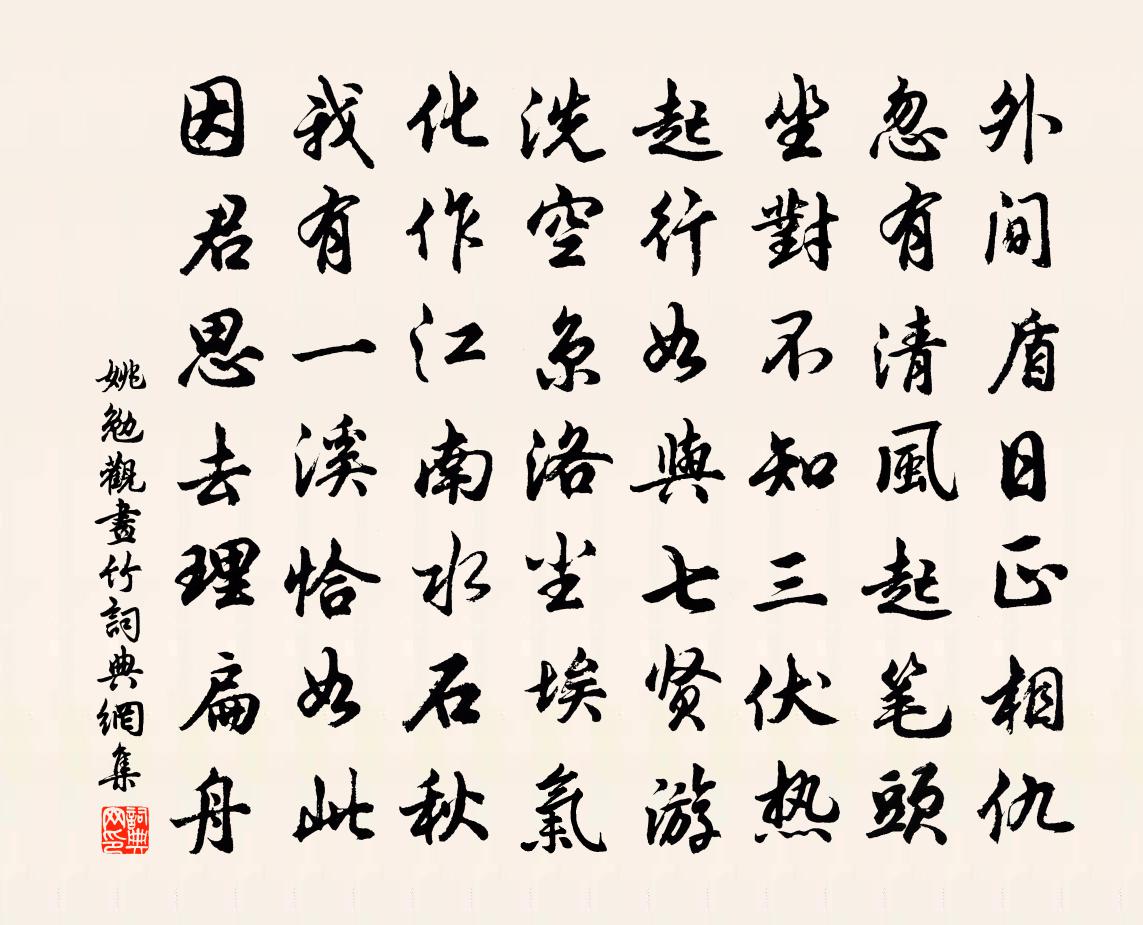 外间盾日正相仇
忽有清風起笔頭
坐對不知三伏热
起行如與七贤游
洗空京洛尘埃氣
化作江南水石秋
我有一溪恰如此
因君思去理扁舟
姚勉觀畫竹詞典網集
詞典网印